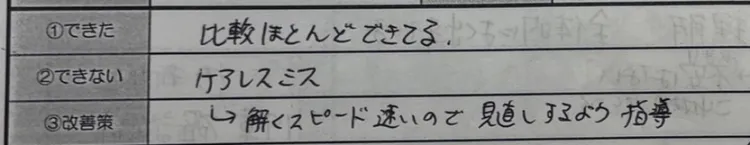 ①できた 比較ほとんどできてる.
②できない ケアレスミス
③改善策 ↳ 解くスピード速いので見直しするよう指導